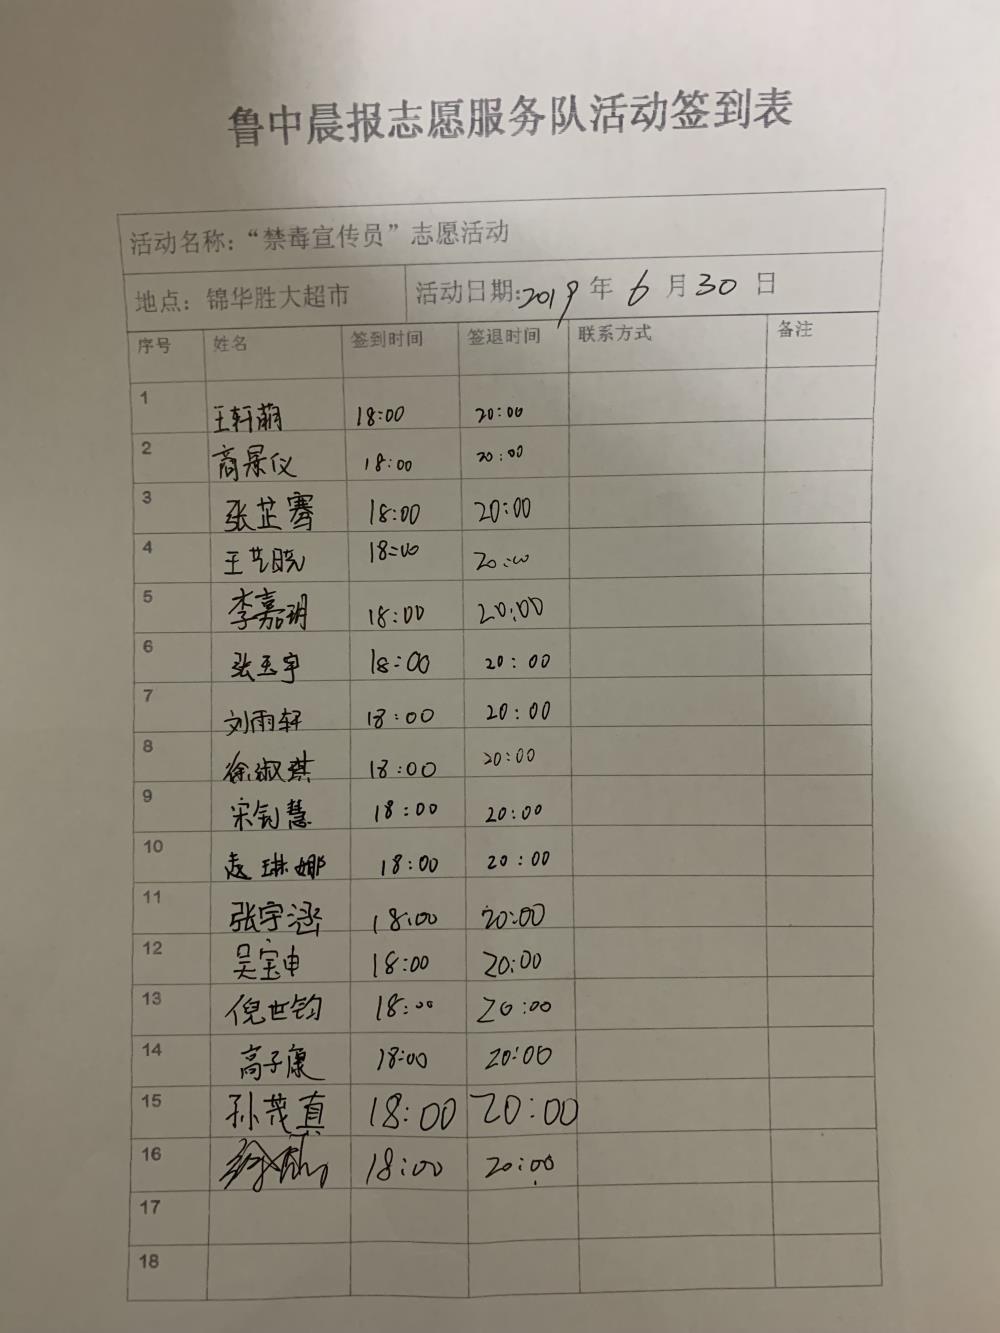 鲁中晨报志愿服务队活动签到表
活动名称：“禁毒宣传员”志愿活动
地点：锦华胜大超市 活动日期:2019年6月30日
序号 姓名 签到时间 签退时间 联系方式 备注
1 王轩萌 18:00 20:00
2 商景仪 18:00 20:00
3 张芷骞 18:00 20:00
4 王艺晓 18:00 20:00
5 李嘉玥 18:00 20:00
6 张玉宇 18:00 20:00
7 刘雨轩 18:00 20:00
8 徐淑琪 18:00 20:00
9 宋钊慧 18:00 20:00
10 赵琳娜 18:00 20:00
11 张宇涵 18:00 20:00
12 吴宝申 18:00 20:00
13 倪世钧 18:00 20:00
14 高子康 18:00 20:00
15 孙茂真 18:00 20:00
16 18:00 20:00
17
18